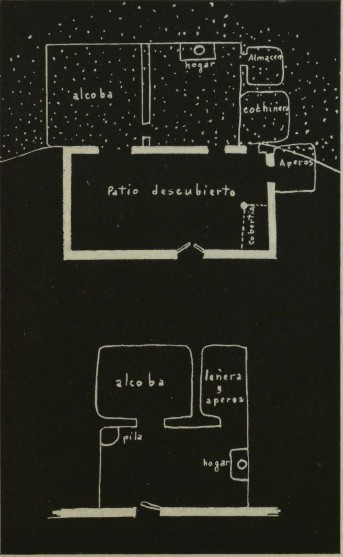 hogar
Almacen
alcoba
cochinera
Aperos
Patio descubierto
cobertizo
alcoba
leñera
y
aperos
pila
hogar